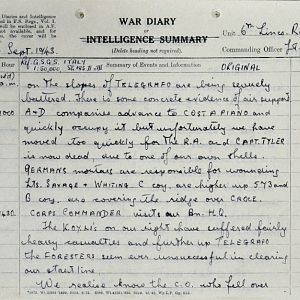 WAR DIARY
or
INTELLIGENCE SUMMARY
(Delete heading not required).
Regs., Vol. I
in F.S. Regs., Vol.
will be enclosed in A.F.
not available, and
the cover will be
Unit 6th Lincs. R
Commanding Officer
Sept. 1943.
Ref G.S.G.S. ITALY
1:50,000
Summary of Events and Information
ORIGINAL
on the slopes of TELEGRAFO are being severely
battered. There is some concrete evidence of air support
A+D companies advance to COSTA PIANO and
quickly occupy it but unfortunately we have
moved too quickly for the R.A. and CAPT. TYLER
is now dead, due to one of our own shells.
GERMANS mortars are responsible for wounding
Lts. SAVAGE + WHITING C coy. are higher up 573 and
B coy. are covering the ridge over CROCE.
CORPS COMMANDER visits our Bn. H.Q.
The KOYLIs on our right have suffered fairly
heavy casualties and further up TELEGRAFO
the FORESTERS seem ever unsuccessful in clearing
our start line.
We realise know the C.O. who fell over